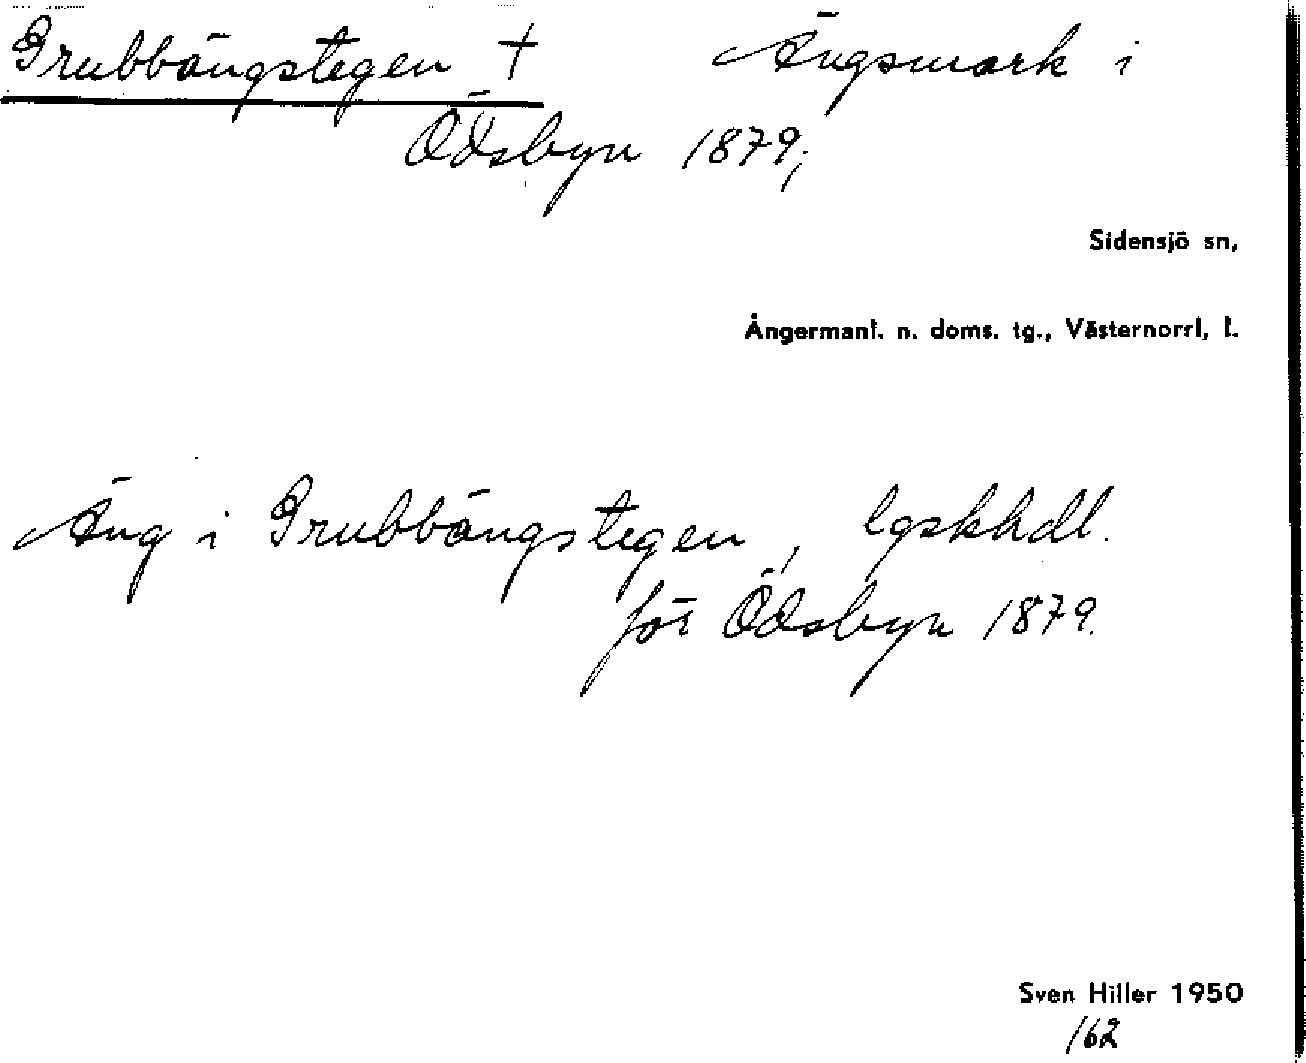 Grubbängstegen † Ängsmark i
Ödsbyn 1879;
Sidensjö sn,
Ångermanl. n. doms. tg., Västernorrl, l.
Äng i Grubbängstegen, lgskhdl.
för Ödsbyn 1879.
Sven Hiller 1950
/62